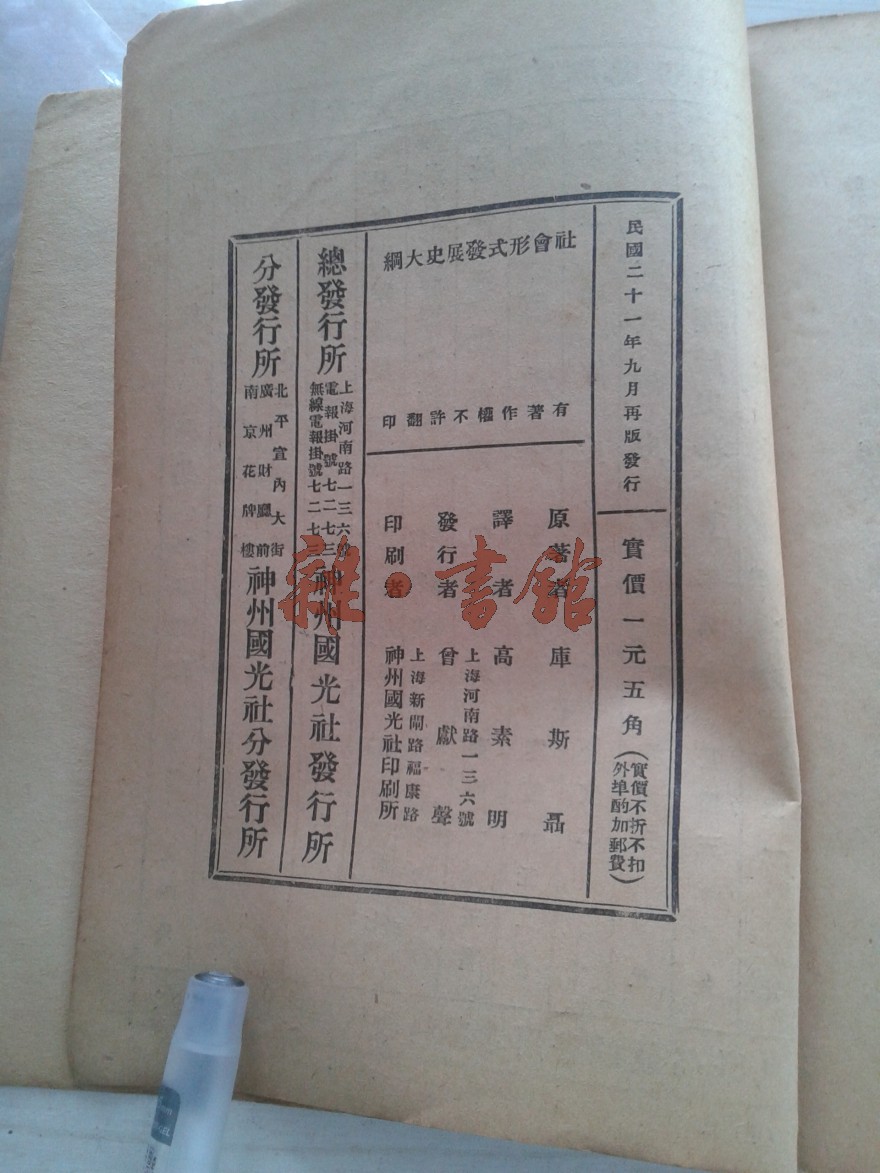 民國二十一年九月再版發行
實價一元五角
(實價不折不扣
外埠酌加郵費)
社會形式發展史大綱
有著作權不許翻印
原著者 庫斯聶
譯者 高素明
上海河南路一三六號
發行者 曾獻聲
上海新閘路福康路
印刷者 神州國光社印刷所
總發行所
上海河南路一三六號
電報掛號七二七三
無線電報掛號七二七三
神州國光社發行所
分發行所
北平宣內大街
廣州財廳前
南京花牌樓
神州國光社分發行所
雜·書館